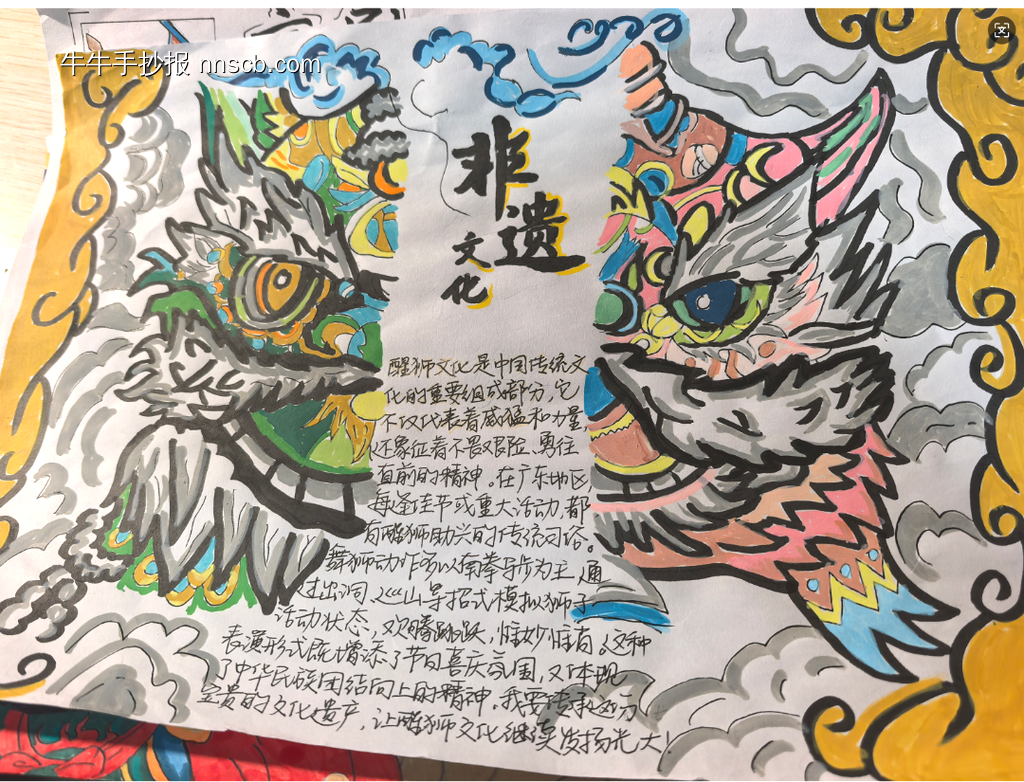 牛牛手抄报 nnscb.com
非遗
文化
醒狮文化是中国传统文
化的重要组成部分,它
不仅代表着威猛和力量,
还象征着不畏艰险、勇往
直前的精神。在广东地区
每逢佳节或重大活动,都
有醒狮助兴的传统习俗。
舞狮动作多以南拳马步为主,通
过出洞、巡山等招式模拟狮子
活动状态,欢腾跳跃,惟妙惟肖。这种
表演形式既增添了节日喜庆氛围,又体现
了中华民族团结向上的精神。我要传承这份
宝贵的文化遗产,让醒狮文化继续发扬光大!